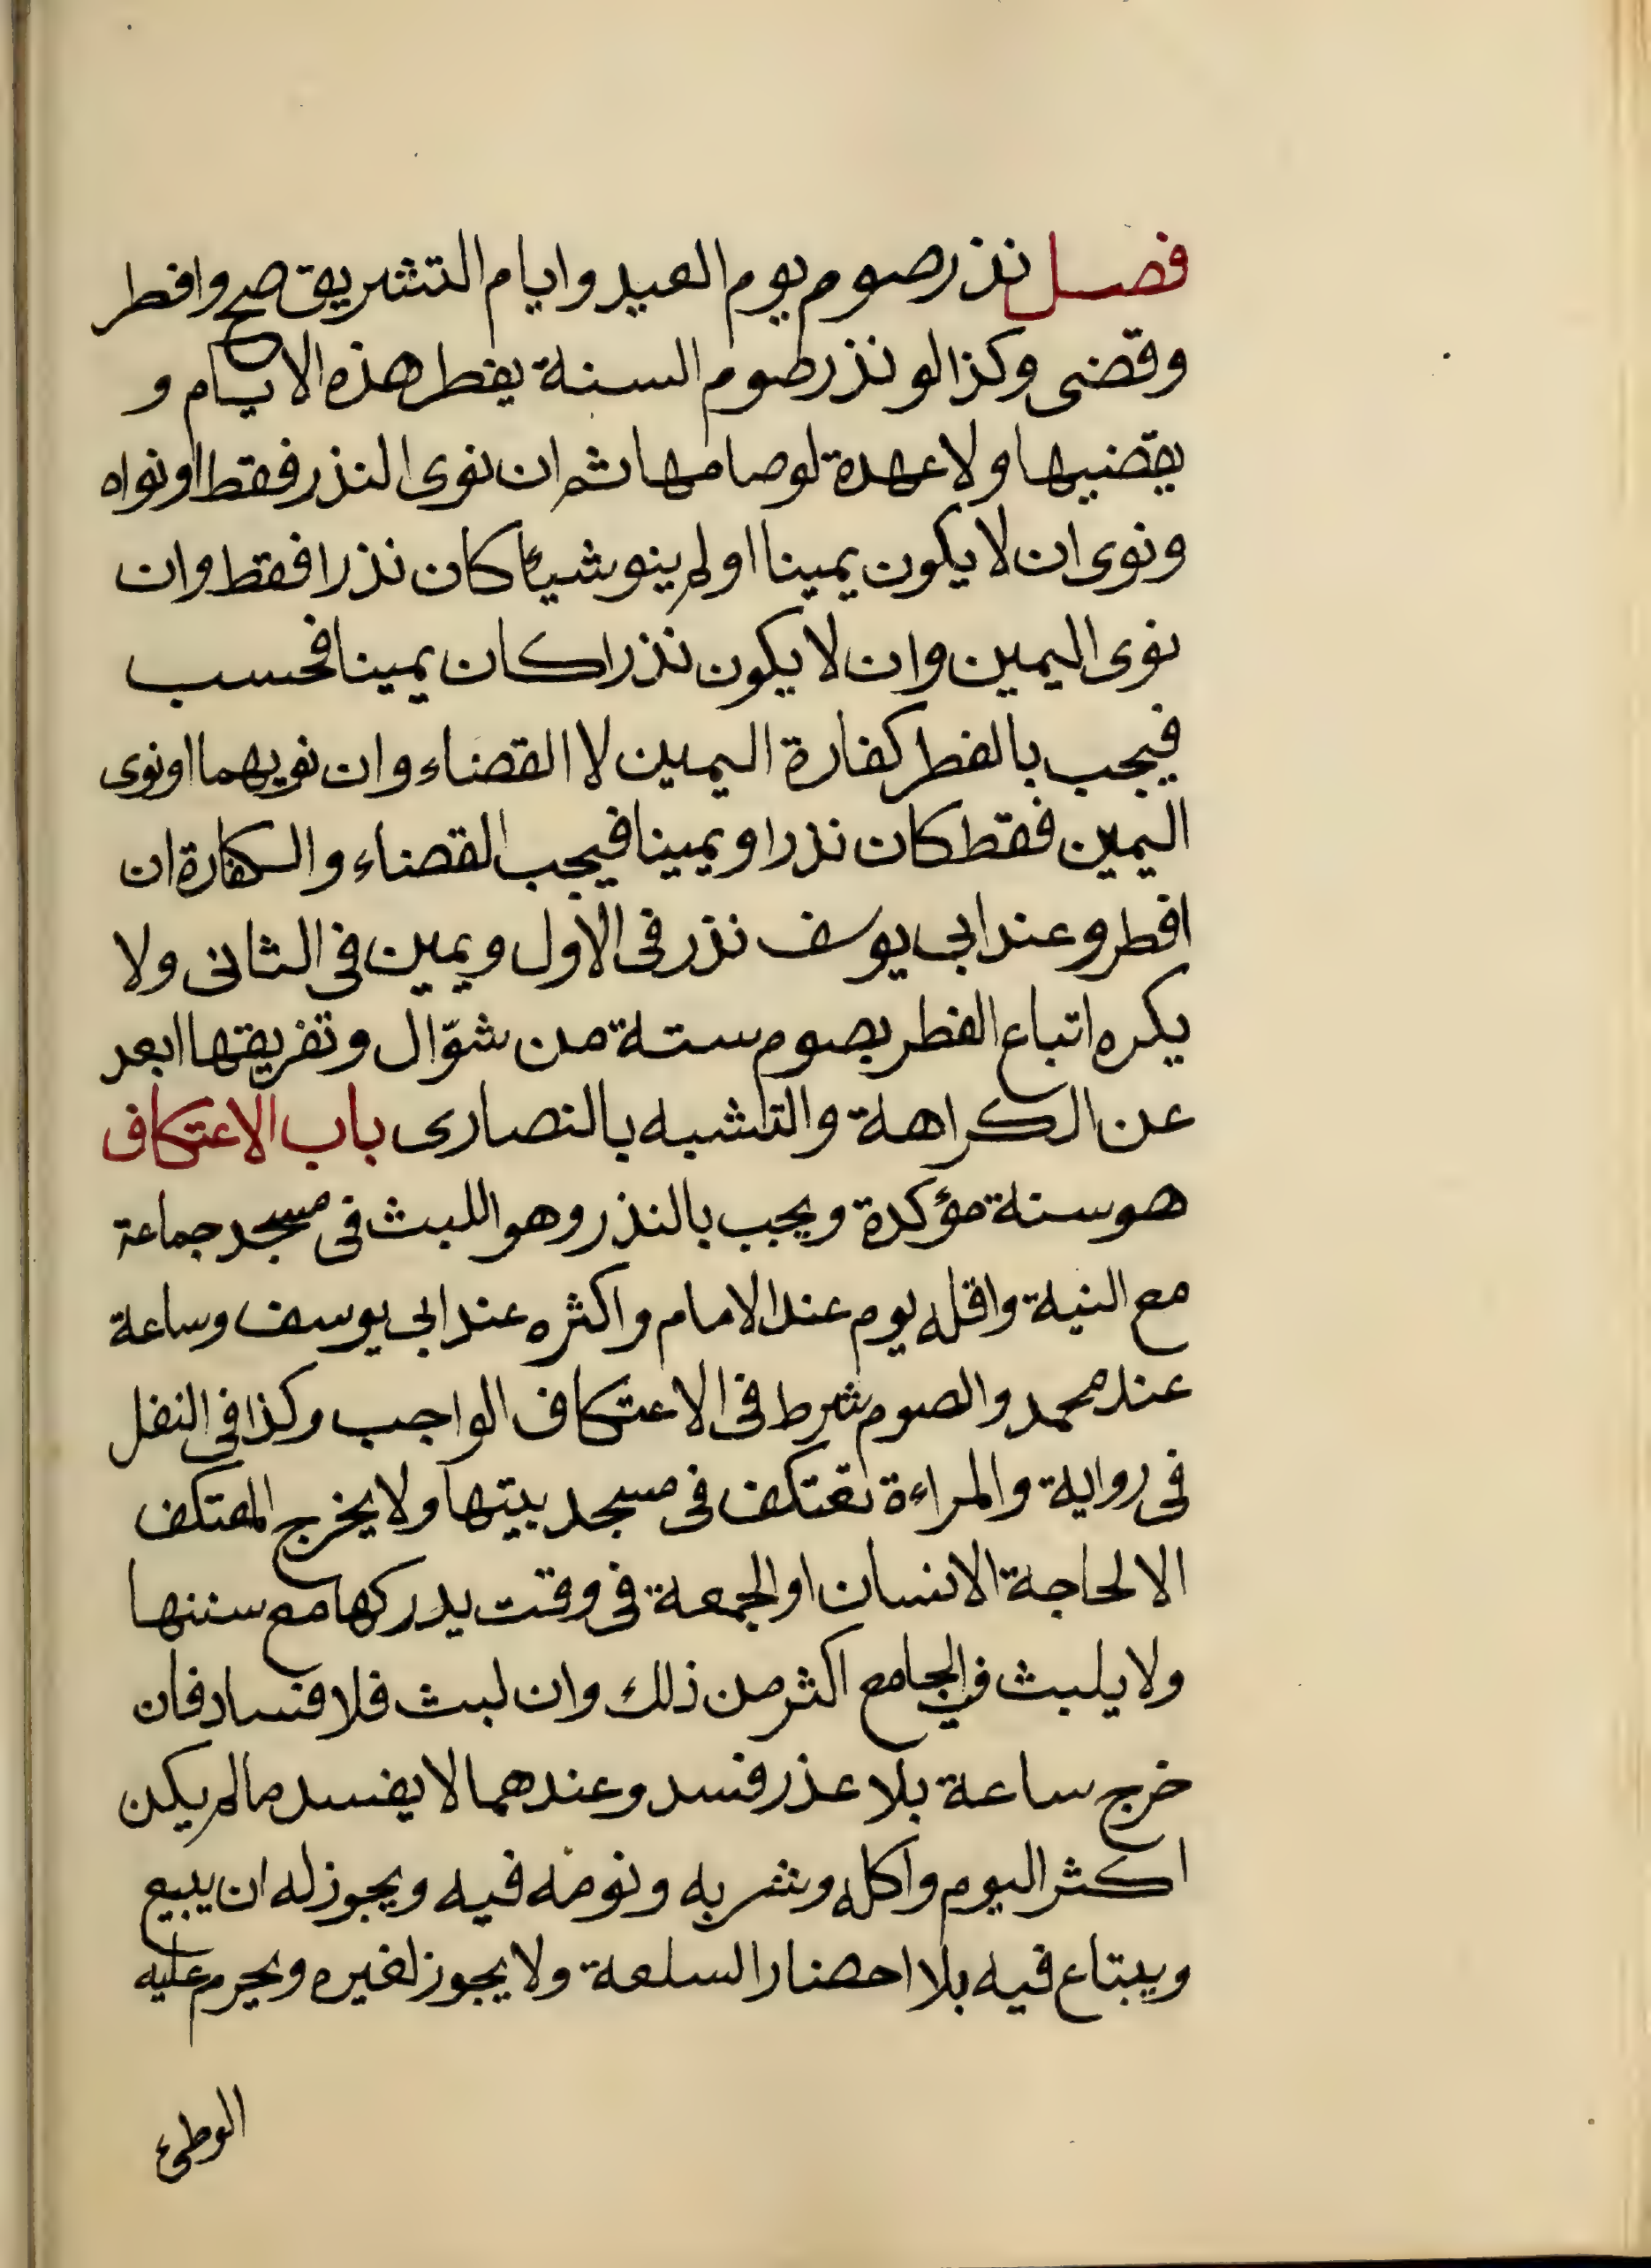 فصل نذر صوم يوم العيد وايام التشريق صح وافطر
وقضى وكذا لو نذر صوم السنة يفطر هذه الايام و
يقضيها ولا عهدة لو صامها ثم ان نوى النذر فقط او نواه
ونوى ان لا يكون يمينا او لم ينو شيأ كان نذرا فقط وان
نوى اليمين وان لا يكون نذرا كان يمينا فحسب
فيجب بالفطر كفارة اليمين لا القضاء وان نويهما او نوى
اليمين فقط كان نذرا ويمينا فيجب القضاء والكفارة ان
افطر وعند ابى يوسف نذر فى الاول ويمين فى الثانى ولا
يكره اتباع الفطر بصوم ستة من شوّال وتفريقها ابعد
عن الكراهة والتشبه بالنصارى باب الاعتكاف
هو سنة مؤكدة ويجب بالنذر وهو اللبث فى مسجد جماعة
مع النية واقله يوم عند الامام واكثره عند ابى يوسف وساعة
عند محمد والصوم شرط فى الاعتكاف الواجب وكذا فى النفل
فى رواية والمراءة تعتكف فى مسجد بيتها ولا يخرج المعتكف
الا لحاجة الانسان او الجمعة فى وقت يدركها مع سننها
ولا يلبث فى الجامع اكثر من ذلك وان لبث فلا فساد فان
خرج ساعة بلا عذر فسد وعندهما لا يفسد ما لم يكن
اكثر اليوم واكله وشربه ونومه فيه ويجوز له ان يبيع
ويبتاع فيه بلا احضار السلعة ولا يجوز لغيره ويحرم عليه
الوطئ